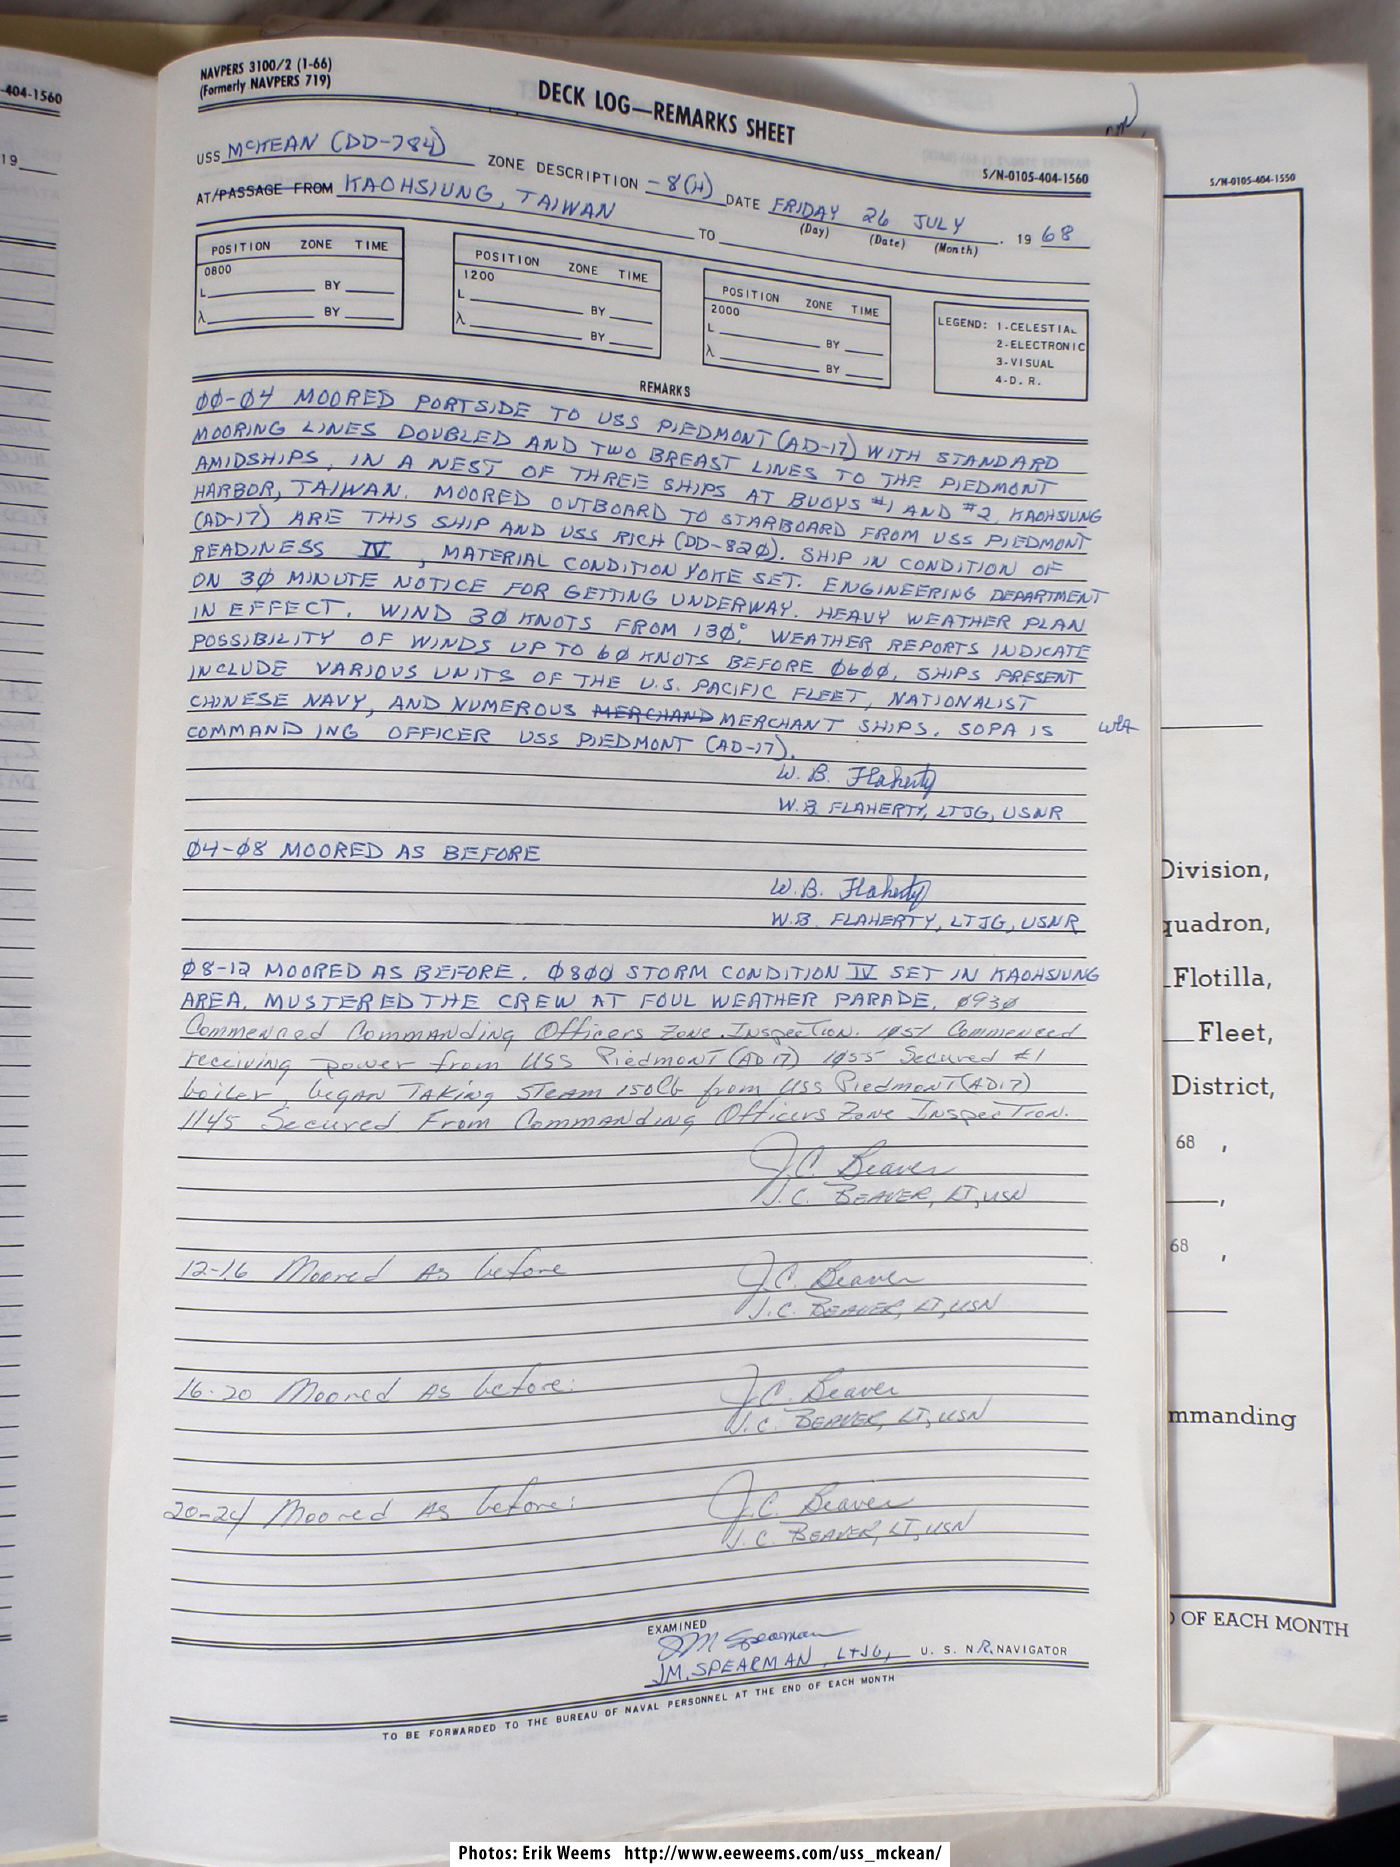 -404-1560
19
NAVPERS 3100/2 (1-66)
(Formerly NAVPERS 719)
DECK LOG—REMARKS SHEET
S/N-0105-404-1560
S/N-0105-404-1550
USS McKEAN (DD-784) ZONE DESCRIPTION -8(H) DATE FRIDAY 26 JULY . 19 68
(Day) (Date) (Month)
AT/PASSAGE FROM KAOHSIUNG, TAIWAN TO
POSITION ZONE TIME
0800
L BY
λ BY
POSITION ZONE TIME
1200
L BY
λ BY
POSITION ZONE TIME
2000
L BY
λ BY
LEGEND: 1-CELESTIAL
2-ELECTRONIC
3-VISUAL
4-D. R.
REMARKS
00-04 MOORED PORTSIDE TO USS PIEDMONT (AD-17) WITH STANDARD
MOORING LINES DOUBLED AND TWO BREAST LINES TO THE PIEDMONT
AMIDSHIPS, IN A NEST OF THREE SHIPS AT BUOYS #1 AND #2, KAOHSIUNG
HARBOR, TAIWAN. MOORED OUTBOARD TO STARBOARD FROM USS PIEDMONT
(AD-17) ARE THIS SHIP AND USS RICH (DD-820). SHIP IN CONDITION OF
READINESS IV, MATERIAL CONDITION YOKE SET. ENGINEERING DEPARTMENT
ON 30 MINUTE NOTICE FOR GETTING UNDERWAY. HEAVY WEATHER PLAN
IN EFFECT. WIND 30 KNOTS FROM 130°. WEATHER REPORTS INDICATE
POSSIBILITY OF WINDS UP TO 60 KNOTS BEFORE 0600. SHIPS PRESENT
INCLUDE VARIOUS UNITS OF THE U.S. PACIFIC FLEET, NATIONALIST
CHINESE NAVY, AND NUMEROUS MERCHAND MERCHANT SHIPS. SOPA IS
COMMANDING OFFICER USS PIEDMONT (AD-17).
W. B. Flaherty
W.B FLAHERTY, LTJG, USNR
04-08 MOORED AS BEFORE
W.B. Flaherty
W.B. FLAHERTY, LTJG, USNR
08-12 MOORED AS BEFORE. 0800 STORM CONDITION IV SET IN KAOHSIUNG
AREA. MUSTERED THE CREW AT FOUL WEATHER PARADE. 0930
Commenced Commanding Officers Zone Inspection. 1051 Commenced
receiving power from USS Piedmont (AD 17) 1055 Secured #1
boiler, began Taking Steam 150lb from USS Piedmont (AD17)
1145 Secured From Commanding Officers Zone Inspection.
J.C. Beaver
J.C. BEAVER, LT, USN
12-16 Moored As before
J.C. Beaver
J.C. BEAVER, LT, USN
16-20 Moored As before:
J.C. Beaver
J.C. BEAVER, LT, USN
20-24 Moored As before:
J.C. Beaver
J.C. BEAVER, LT, USN
EXAMINED
JM Spearman
JM. SPEARMAN, LTJG, U. S. N R. NAVIGATOR
TO BE FORWARDED TO THE BUREAU OF NAVAL PERSONNEL AT THE END OF EACH MONTH
Division,
quadron,
Flotilla,
Fleet,
District,
68 ,
,
68 ,
mmanding
OF EACH MONTH
Photos: Erik Weems http://www.eeweems.com/uss_mckean/